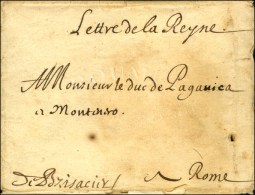 Lettre de la Reyne.
A Monsieur le duc de Paganica
a Montenro
De Brisacier
A Rome